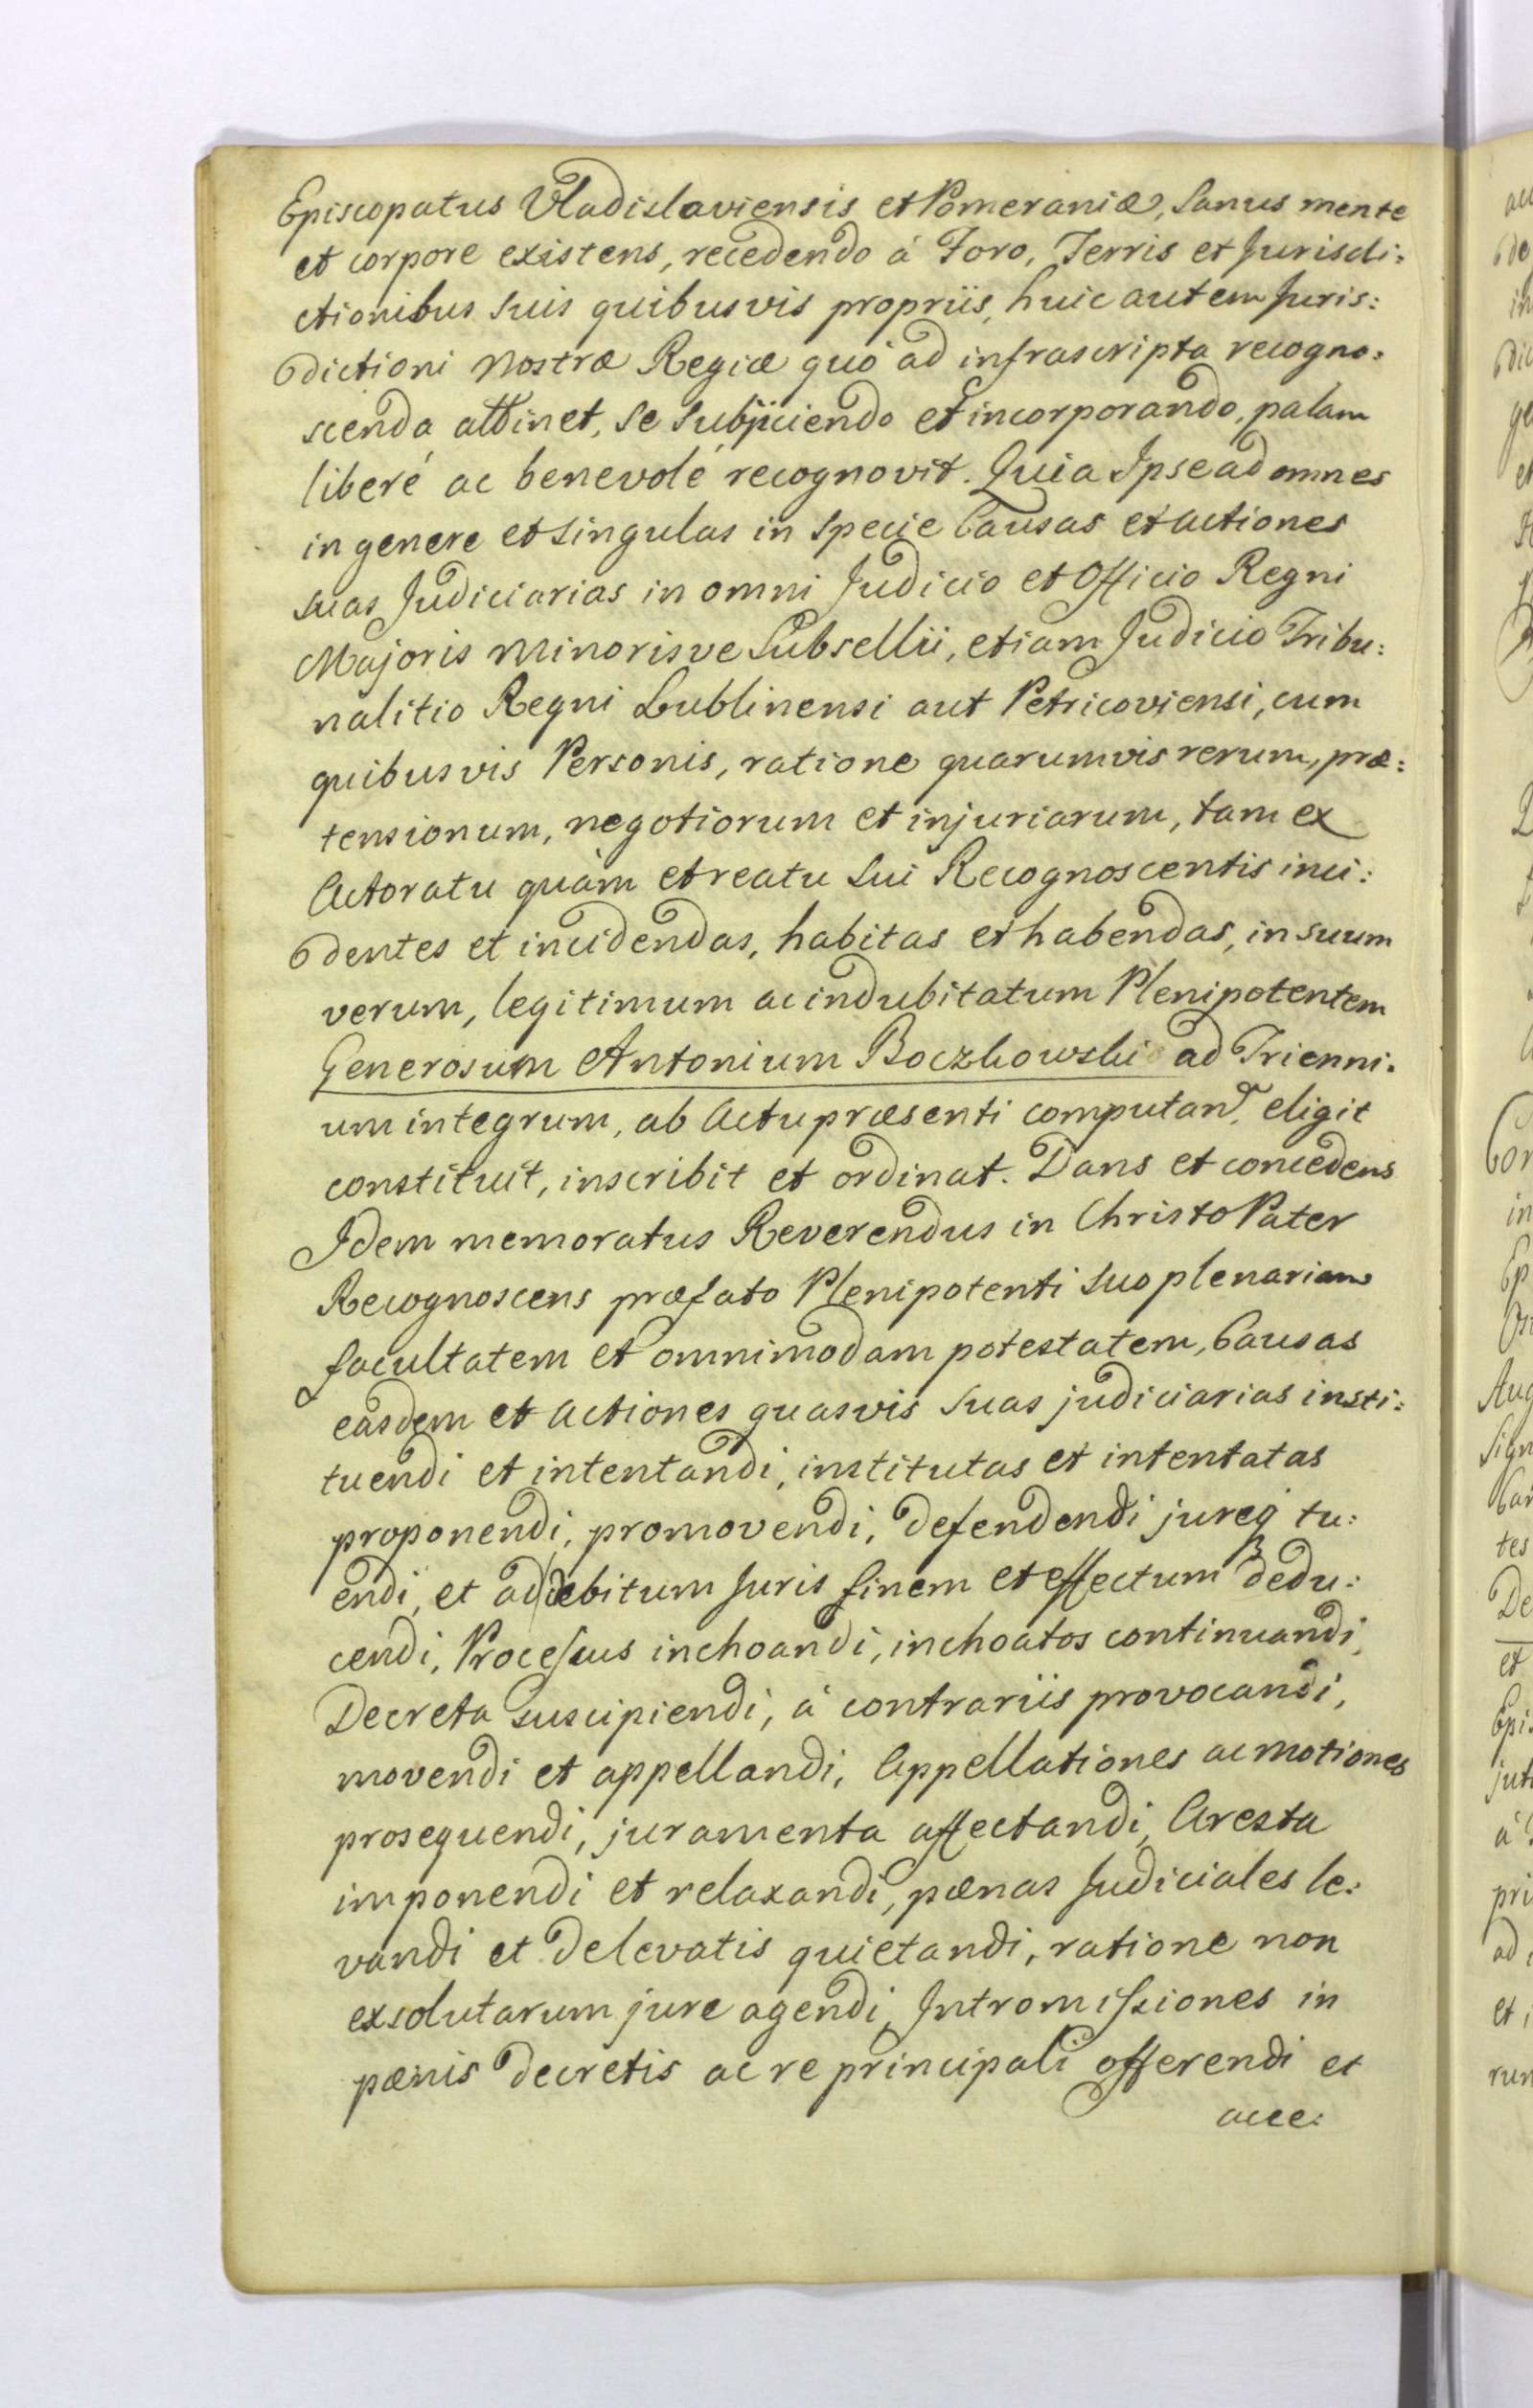 Episcopatus Vladislaviensis et Pomeraniæ, Sanus mente
et corpore existens, recedendo á Foro, Terris et Jurisdi:
ctionibus suis quibusvis propriis, huic autem Juris:
dictioni Nostræ Regiæ quó ad infrascripta recogno:
scenda attinet, se subjiciendo et incorporando, palam
liberé ac benevolé recognovit. Quia Ipse ad omnes
in genere et singulas in specie Causas et actiones
suas Judiciarias in omni Judicio et Officio Regni
Majoris Minorisve Subsellii, etiam Judicio Tribu:
nalitio Regni Lublinensi aut Petricoviensi, cum
quibusvis Personis, ratione quarumvis rerum, præ:
tensionum, negotiorum et injuriarum, tam ex
Actoratu quàm et reatu sui Recognoscentis inci:
dentes et incidendas, habitas et habendas, in suum
verum, legitimum ac indubitatum Plenipotentem
Generosum Antonium Boczkowski ad Trienni.
um integrum, ab Actu præsenti computand. eligit
constituit, inscribit et ordinat. Dans et concedens
Idem memoratus Reverendus in Christo Pater
Recognoscens præfato Plenipotenti suo plenariam
facultatem et omnimodam potestatem, Causas
easdem et actiones quasvis suas judiciarias insti:
tuendi et intentandi, institutas et intentatas
proponendi, promovendi, defendendi jureq tu:
endi, et ad debitum Juris finem et effectum dedu:
cendi, Processus inchoandi, inchoatos continuandi,
Decreta suscipiendi, á contrariis provocandi,
movendi et appellandi, Appellationes ac motiones
prosequendi, juramenta affectandi, Aresta
imponendi et relaxandi, pænas Judiciales le:
vandi et de levatis quietandi, ratione non
exsolutarum jure agendi, Intromissiones in
pænis decretis ac re principali offerendi et
acce: